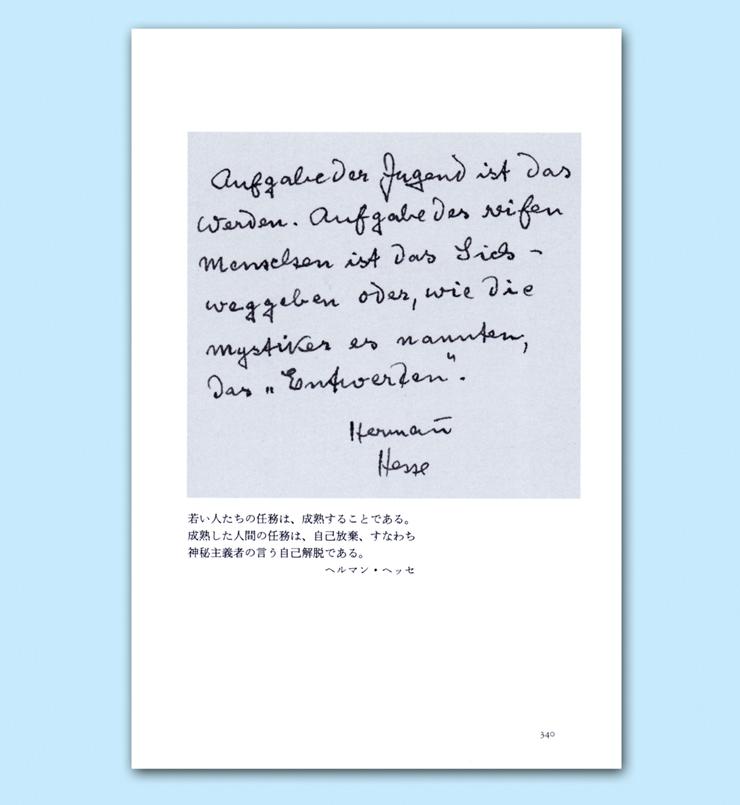 Aufgabe der Jugend ist das
Werden. Aufgabe des reifen
Menschen ist das Sich-
weggeben oder, wie die
Mystiker es nannten,
das „Entwerden".
Hermann̄
Hesse
若い人たちの任務は、成熟することである。
成熟した人間の任務は、自己放棄、すなわち
神秘主義者の言う自己解脱である。
ヘルマン・ヘッセ
340